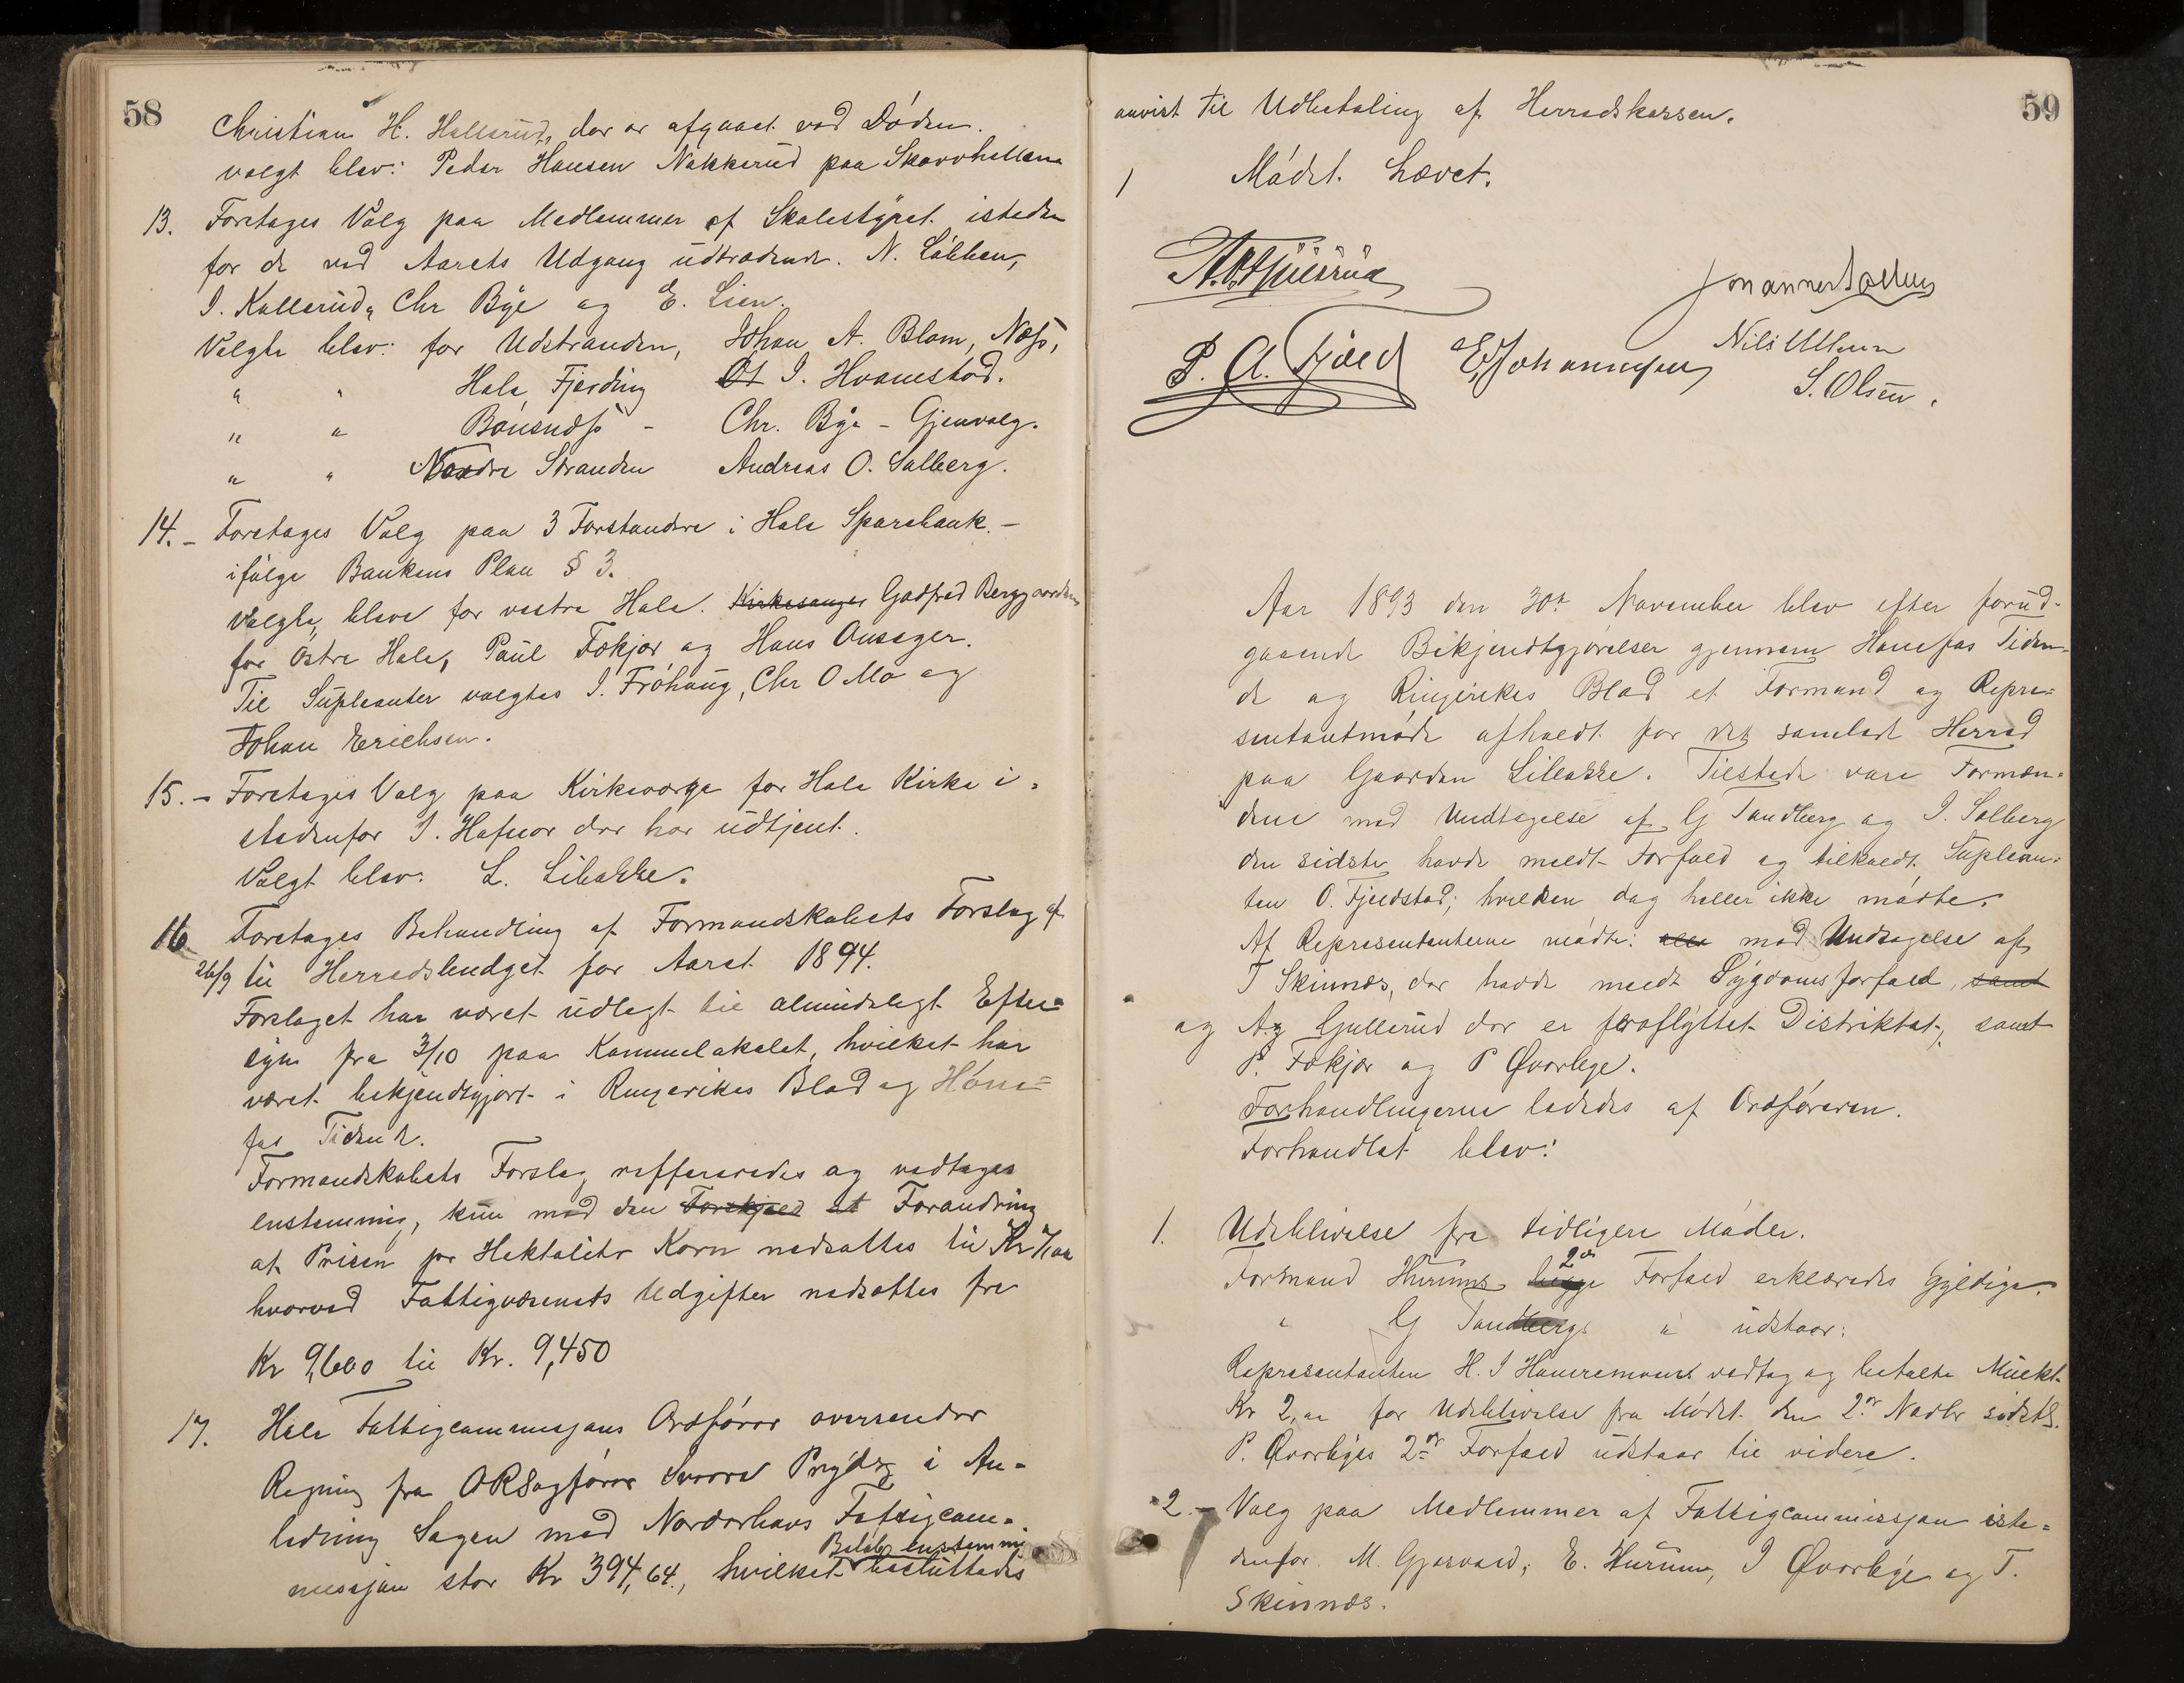 58
Christian H. Hallerud, der er afgaaet ved Døden.
valgt blev: Peder Hansen Nakkerud paa Skarvhellen
13. Foretages Valg paa Medlemmer af Skolestyret isteden
for de ved Aarets Udgang udtrædende. N. Løbben,
I. Kallerud, Chr Bye og E. Lien.
Valgte blev: for Udstranden, Johan A. Blom, Næss,
" " Hole Fjerding I. Hvamstad.
" " Bønsnæss - Chr. Bye - Gjenvalg.
" " Nordre Stranden Andreas O. Solberg.
14. - Foretages Valg paa 3 Forstandere i Hole Sparebank. -
ifølge Bankens Plan § 3.
valgte, bleve for vestre Hole. Kirkesanger Godfred Berggaarden
for Østre Hole, Paul Fekjær og Hans Onsager.
Til Supleanter valgtes I. Frøhaug, Chr O Mo og
Johan Erichsen.
15. - Foretages Valg paa Kirkeværge for Hole Kirke i-
stedenfor I. Hafnor der har udtjent.
Valgt blev: L. Libakke.
16 Foretages Behandling af Formandskabets Forslag af
26/9 til Herredsbudget for Aaret 1894.
Forslaget har været udlagt til almindeligt Efter=
syn fra 3/10 paa Komunelokalet, hvilket har
været bekjendtgjort i Ringerikes Blad og Høne=
fos Tidende.
Formandskabets Forslag reffereredes og vedtages
enstemmig, kun med den Forskjæl at Forandring
at Prisen pr Hektoliter Korn nedsattes til Kr
hvorved Fattigvæsenets Udgifter nedsattes fra
Kr 9,600 til Kr. 9,450
17. Hole Fattigcommisjons Ordfører oversender
Regning fra ORSagfører Sværre i An-
ledning Sagen med Norderhovs Fattigcom-
Beløb enstemmig
missjon stor Kr 394,64., hvilket besluttedes
59
anvist til Udbetaling af Herredskassen.
Mødet hævet.
P. A. Fjeld
E Johannesen
Nils Ultvin
S. Olsen.
Aar 1893 den 30te November blev efter forud-
gaaende Bekjendtgjørelser gjennem Hønefos Tiden-
de og Ringerikes Blad et Formand og Repre=
sentantmøde afholdt for det samlede Herred
paa Gaarden Libakke. Tilstede vare Formæn-
dene med Undtagelse af G Tandberg og I. Solberg
den sidste havde meldt Forfald og tilkaldt Suplean-
ten O. Fjeldstad; hvilken dog heller ikke mødte.
Af Representanterne mødte: alle med Undtagelse af
T Skinnes, der havde meldt Sygdomsforfald, samt
og Ag Gullerud der er fraflyttet Distriktet, samt
P. Fekjær og P Øverbye.
Forhandlingerne lededes af Ordføreren.
Forhandlet blev:
1. Udeblivelse fra tidligere Møder.
2de
Formand Hurums begge Forfald erklæredes Gyldige.
" G Tandbergs " udstaar:
Representanten H. I Hauremoen vedtog og betalte Mulkt
Kr 2,00 for Udeblivelse fra Mødet den 2en Novbr sidstl.
P. Øverbyes 2de Forfald udstaar til videre.
2. - Valg paa Medlemmer af Fattigcommissjon iste=
denfor. M. Gjesvold, E. Hurum, I Øverbye og T.
Skinnes.